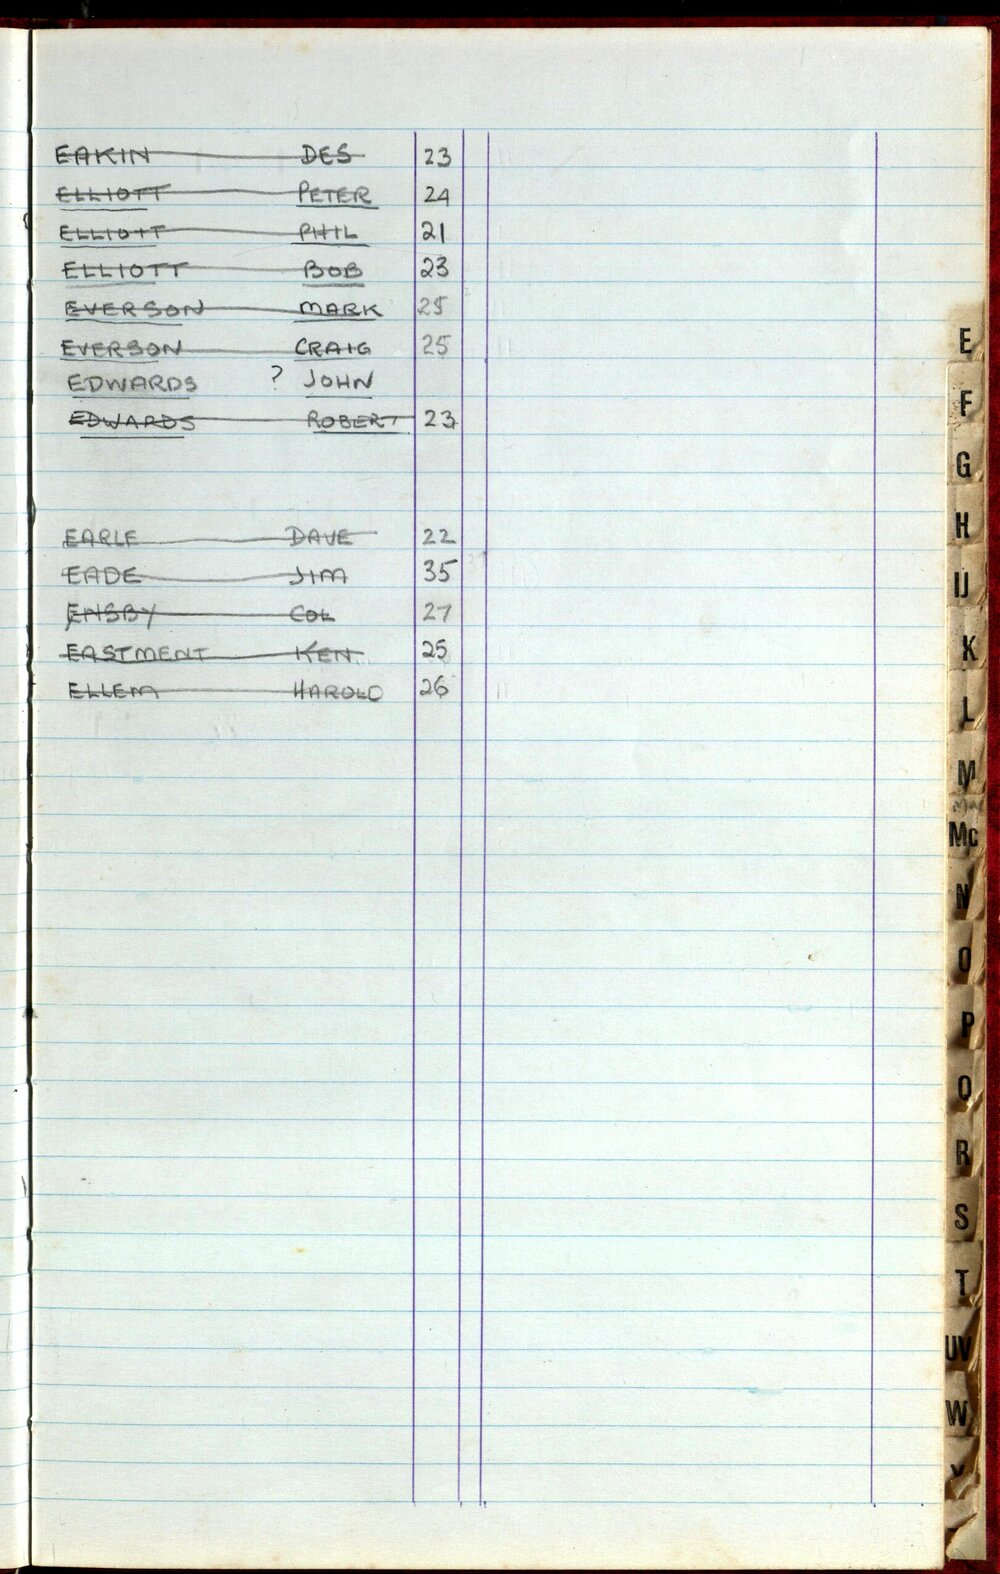 EAKIN DES 23
ELLIOTT PETER 24
ELLIOTT PHIL 21
ELLIOTT BOB 23
EVERSON MARK 25
EVERSON CRAIG 25
EDWARDS ? JOHN
EDWARDS ROBERT 23
EARLE DAVE 22
EADE JIM 35
ENSBY COL 27
EASTMENT KEN 25
ELLEM HAROLD 26
E
F
G
H
IJ
K
L
M
Mc
N
O
P
Q
R
S
T
UV
W